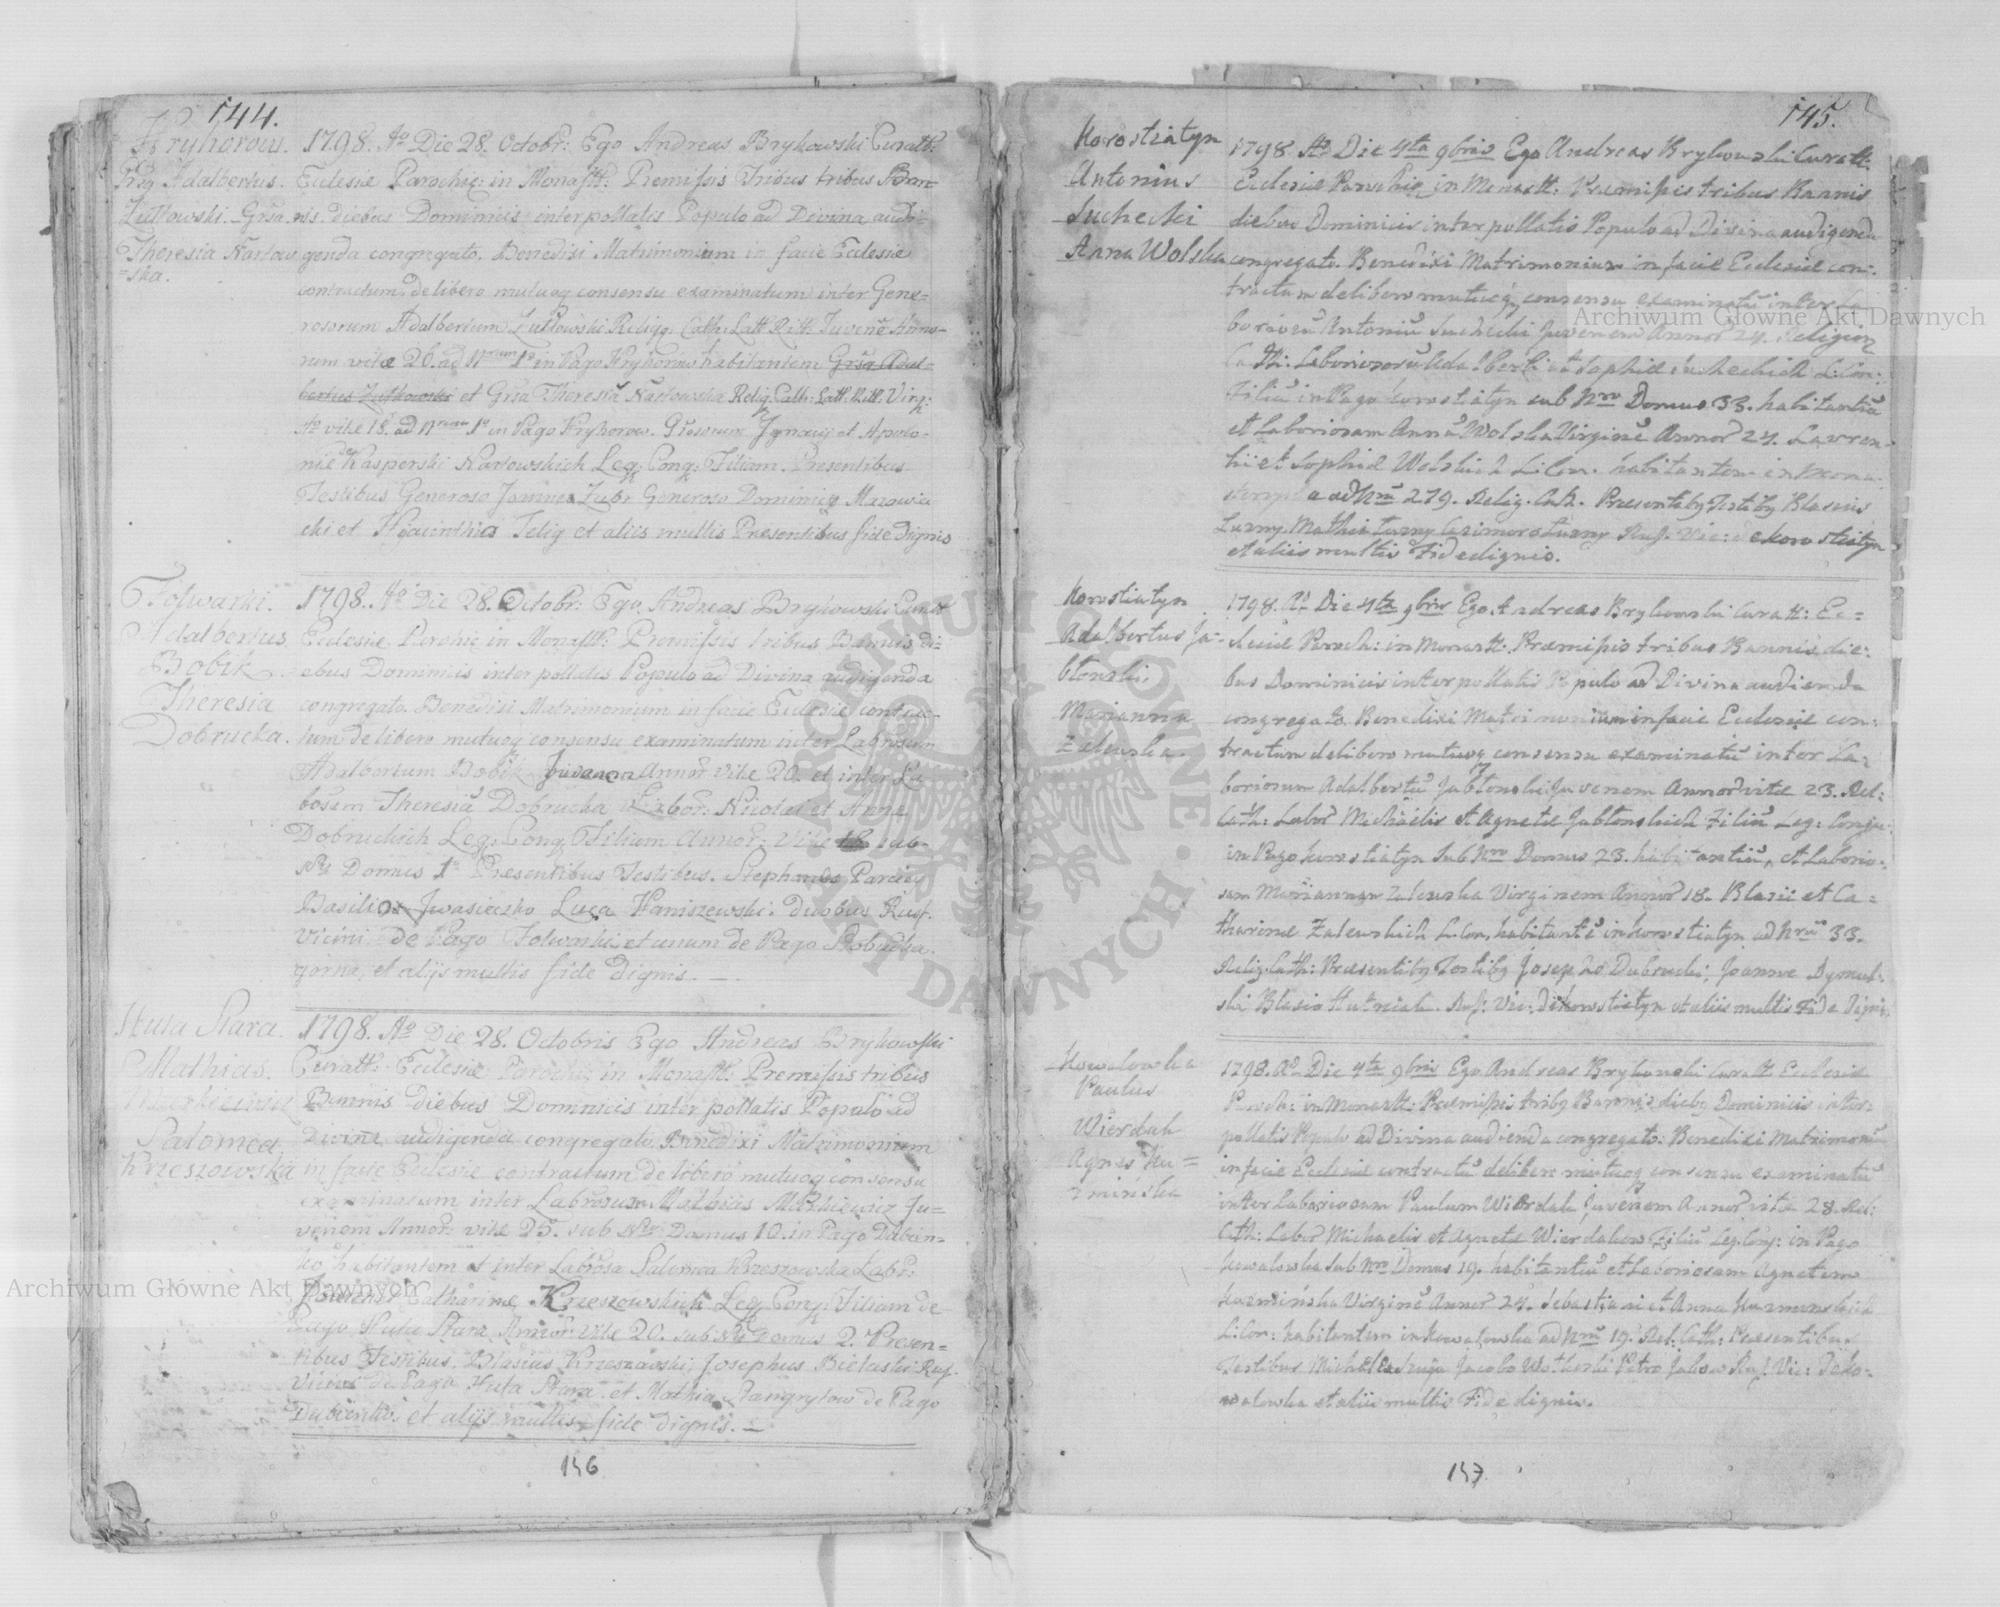 144.
Hryhorow.
Grsg Adalbertus.
Lutkowski. Grsa.
Theresia Narlow
=ska.
1798. Ao Die 28. Octobr: Ego Andreas Brykowski Curatt.
Eclesie Parochie: in Monastt: Premissis Tribus tribus Ban=
nis diebus Dominicis interpollatis Populo ad Divina audi=
genda congregato. Benedixi Matrimonium in facie Eclesie
contractum, de libero mutuoq consensu examinatum inter Gene=
rosorum Adalbertum Lutkowski Religg: Cath: Latt: Ritt. Juvene Anno=
rum vite 26. ad Nrum 1o in Pago Hryhorow habitantem Grsa Adal=
bertus Lutkowski et Grsa Theresia Narlowska Relig: Cath: Latt. Ritt. Virg:
Ao vite 18. ad Nrum 1o in Pago Hryhorow. Grosorum Jgnacij et Apolo=
nie de Kasperski Narlowskich Leg: Conq: Filiam. Presentibus
Testibus Generoso Joannes Zubr Generoso Dominico Mazowie
cki et Hyacinthio Telig et aliis multis Presentibus fide dignis
Folwarki.
Adalbertus
Bobik
Theresia
Dobrucka.
1798. Ao Die 28. Octobr: Ego, Andreas Brykowski Curatt
Eclesie Parohie in Monastt: Premissis tribus Bannis di=
ebus Dominicis inter pollatis Populo ad Divina audigenda
congregato. Benedixi Matrimonium in facie Eclesie contrac=
tum de libero mutuoq consensu examinatum inter Labrosum
Adalbertum Bobik Juvenem Annor vite 20. et inter La=
bosam Theresia Dobrucka Labor: Nicolai et Anne
Dobruckich Leg: Conq Filium Annor: vite sub
Nro Domus 1o Presentibus Testibus. Stephanes Parciej
Basilio Jwasieczko Luca Haniszewski: duobus Rusf.
Vicini de Pago Folwarki et unum de Pago Slobudka
gorna, et alijs multis fide dignis. —
Huta Stara.
Mathias.
Salomea
Krzeszowska
1798. Ao Die 28. Octobris Ego Andreas Brykowski
Curatt: Eclesie Parochie in Monastt: Premissis tribus
Bannis diebus Dominicis inter pollatis Populo ad
Divina audigenda congregato. Benedixi Matrimonium
in facie Eclesie contractum de libero mutuoq consensu
examinatum inter Labrosum Mathias Mackiewicz Ju=
venem Annor: vite 25. sub Nro Domus 10. in Pago Dubien=
ko habitantem et inter Labrosa Salomea Krzeszowska Labr:
Catharine Krzeszowskich Leg Conq: Filiam de
Pago Huta Stara Annor: vite 20. sub Nro Domus 2. Presen=
tibus Testibus. Blasius Krzeszowski, Josephus Bielaski Rusf.
Vicini de Pago Huta Stara et Mathia Stangrytow de Pago
Dubienko, et alijs multis fide dignis. —
146
145.
Korostiatyn
Antonius
Suchecki
Anna Wolska
1798 Ao Die 4ta 9bris Ego Andreas Brykowski Curatt:
Ecclesie Parochie in Monastt: Praemissis tribus Bannis
diebus Dominicis interpollatis Populo ad Divina audigenda
congregato. Benedixi Matrimonium in facie Ecclesie con:
tractum de libero mutuoq consensu examinatu inter La
boriosu Antoniu Suchecki Juvenem Annor 24. Religion
Cath: Laboriosoru Adalberti et Sophie Sucheckich L: Con:
Filiu in Pago Korostiatyn sub Nro Domus 33. habitantiu
et Laboriosam Anna Wolska Virgine Annor 24. Lawren
tii et Sophie Wolskich L: Con. habitantem in Mona
sterzyska ad Nru 279. Relig. Cat. Praesentibq Testibq Blasius
Lurny Mathia Lurny Cazimoro Lurny Rusf. Vic: de Korostiatyn
et aliis multis Fide dignis.
Korostiatyn
Adalbertus Ja=
błonski
Marianna
Zalewska.
1798. Ao Die 4ta 9bris Ego Andreas Brykowski Curatt: Ec=
clesie Paroch: in Monastt. Praemissis tribus Bannis die:
bus Dominicis interpollatis Populo ad Divina audienda
congregato Benedixi Matrimonium in facie Ecclesie con:
tractum de libero mutuoq consensu examinatu inter La:
boriosum Adalbertu Jabłonski Juvenem Annor vite 23. Rel:
Cath: Labor Michaelis et Agnete Jabłonskich Filiu Leg: Conju
in Pago Korostiatyn Sub Nro Domus 23. habitantiu, et Laborio:
sam Mariannam Zalewska Virginem Annor 18. Blasii et Ca=
tharine Zalewskich L. Con, habitante in Korostiatyn ad Nru 33.
Relig. Cath: Praesentibq Testibq Josepho Dubrucki, Joanne Dymul=
ski Blasio Hutniak. Rusf: Vic: de Korostiatyn et aliis multis Fide Dignis.
Kowalowka
Paulus
Wierdak
Agnes Ku=
zminska
1798. Ao Die 4ta 9bris Ego Andreas Brykowski Curatt Ecclesie
Paroch: in Monastt: Praemissis tribq Bannis diebq Dominicis inter:
pollatis Populo ad Divina audienda congregato: Benedixi Matrimoniu
in facie Ecclesie contractu de libero mutuoq consensu examinatu
inter Laboriosum Paulum Wierdak Juvenem Annor vite 28. Rel:
Cath: Labor Michaelis et Agneta Wierdakow Filiu Leg. Conj: in Pago
Kowalowka Sub Nro Domus 19. habitantiu et Laboriosam Agnetem
Kuzmińska Virgine Annor 24. Sebastiani et Anna Kuzminskich
L: Con: habitantem in Kowalowka ad Nru 19. Rel: Cath: Praesentibus
Testibus Michaele Jacobo Petro Rusf: Vic: de Ko=
walowka et aliis multis Fide dignis.
147
Archiwum Główne Akt Dawnych
Archiwum Główne Akt Dawnych
ARCHIWUM GŁÓWNE
AKT DAWNYCH